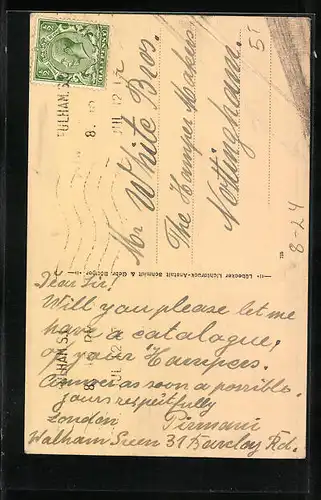 FULHAM.S.
8.
JUL 12
Mr White Bros.
The Hamper Makers
Nottingham.
51
8-24
Lübecker Lichtdruck-Anstalt Schmidt & Gebr. Böttger
Dear Sir!
Will you please let me
have a catalogue,
of your Hampers.
Answer as soon a possible.
yours respectfully
London Pirmani
Walham Green 31 Barclay Rd.